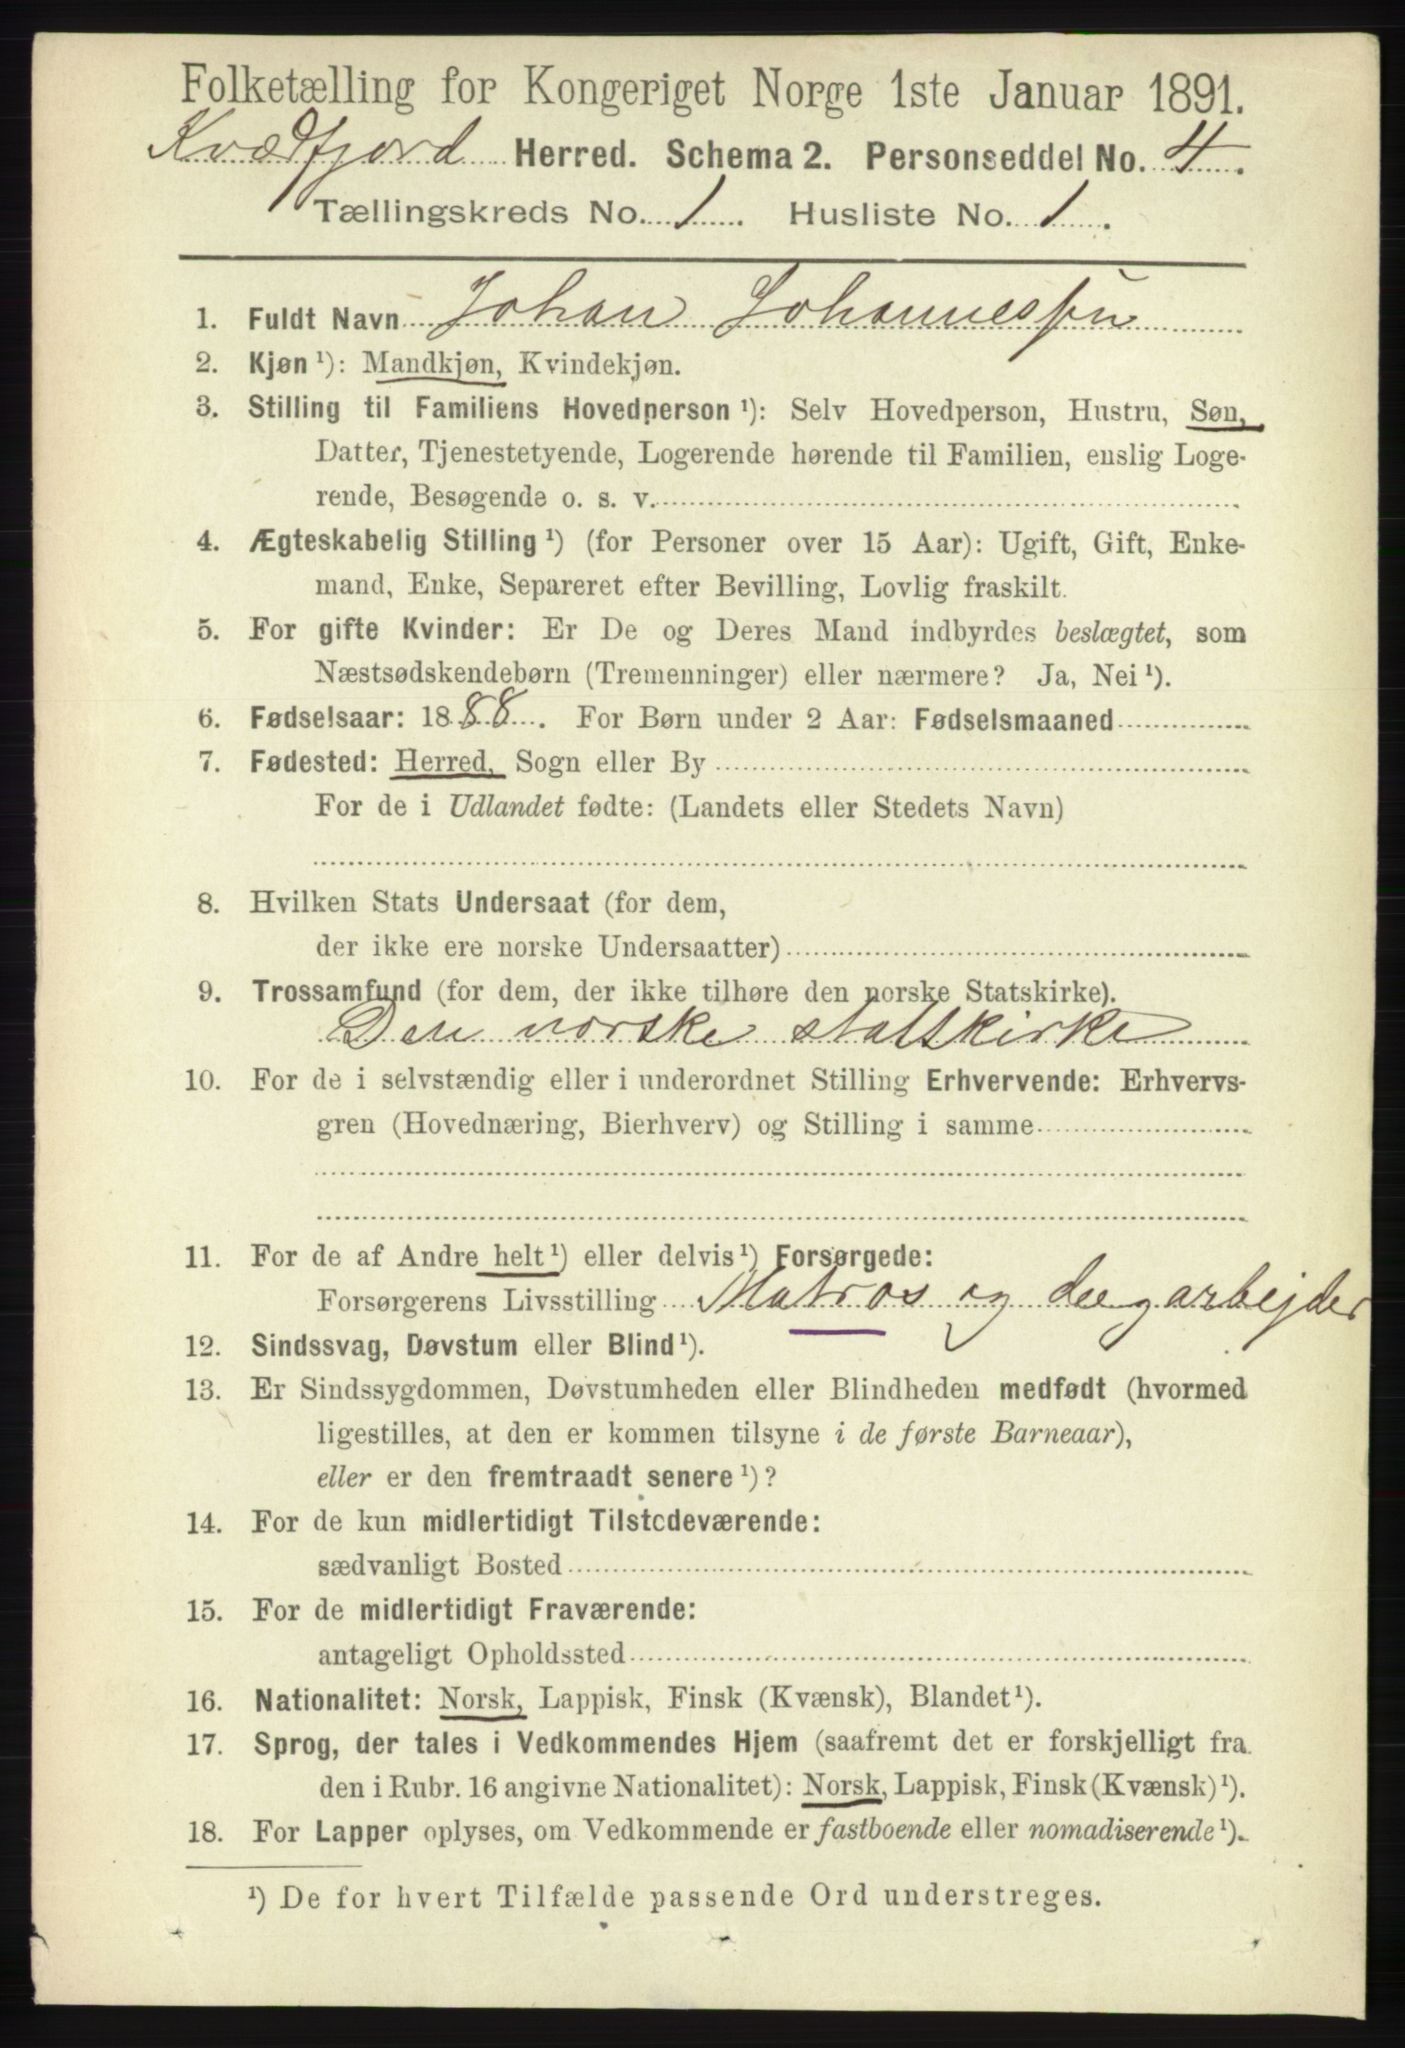 Folketælling for Kongeriget Norge 1ste Januar 1891.
Kvædfjord Herred. Schema 2. Personseddel No. 4.
Tællingskreds No. 1. Husliste No. 1.
1. Fuldt Navn Johan Johannessen
2. Kjøn ¹): Mandkjøn, Kvindekjøn.
3. Stilling til Familiens Hovedperson ¹): Selv Hovedperson, Hustru, Søn,
Datter, Tjenestetyende, Logerende hørende til Familien, enslig Loge-
rende, Besøgende o. s. v.
4. Ægteskabelig Stilling ¹) (for Personer over 15 Aar): Ugift, Gift, Enke-
mand, Enke, Separeret efter Bevilling, Lovlig fraskilt.
5. For gifte Kvinder: Er De og Deres Mand indbyrdes beslægtet, som
Næstsødskendebørn (Tremenninger) eller nærmere? Ja, Nei ¹).
6. Fødselsaar: 1888. For Børn under 2 Aar: Fødselsmaaned
7. Fødested: Herred, Sogn eller By
For de i Udlandet fødte: (Landets eller Stedets Navn)
8. Hvilken Stats Undersaat (for dem,
der ikke ere norske Undersaatter)
9. Trossamfund (for dem, der ikke tilhøre den norske Statskirke).
Den norske statskirke
10. For de i selvstændig eller i underordnet Stilling Erhvervende: Erhvervs-
gren (Hovednæring, Bierhverv) og Stilling i samme
11. For de af Andre helt ¹) eller delvis ¹) Forsørgede:
Forsørgerens Livsstilling Matros og dagarbejder
12. Sindssvag, Døvstum eller Blind ¹).
13. Er Sindssygdommen, Døvstumheden eller Blindheden medfødt (hvormed
ligestilles, at den er kommen tilsyne i de første Barneaar),
eller er den fremtraadt senere ¹)?
14. For de kun midlertidigt Tilstedeværende:
sædvanligt Bosted
15. For de midlertidigt Fraværende:
antageligt Opholdssted
16. Nationalitet: Norsk, Lappisk, Finsk (Kvænsk), Blandet ¹).
17. Sprog, der tales i Vedkommendes Hjem (saafremt det er forskjelligt fra
den i Rubr. 16 angivne Nationalitet): Norsk, Lappisk, Finsk (Kvænsk) ¹).
18. For Lapper oplyses, om Vedkommende er fastboende eller nomadiserende ¹).
¹) De for hvert Tilfælde passende Ord understreges.